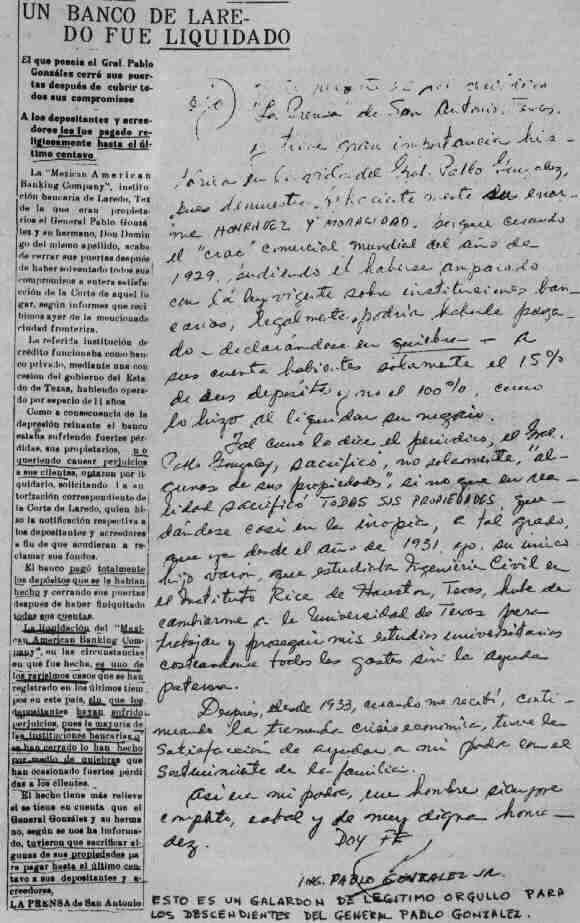 UN BANCO DE LARE-
DO FUE LIQUIDADO
El que poseía el Gral. Pablo
Gonzáles cerró sus puer-
tas después de cubrir to-
dos sus compromisos
A los depositantes y acree-
dores les fue pagado re-
ligiosamente hasta el úl-
timo centavo.
La "Mexican American
Banking Company", institu-
ción bancaria de Laredo, Tex
de la que eran propieta-
rios el General Pablo Gonzá-
lez y su hermano, Don Domin
go del mismo apellido, acaba
de cerrar sus puertas después
de haber solventado todos sus
compromisos a entera satisfa-
cción de la Corte de aquel lu
gar, según informes que reci
bimos ayer de la mencionada
ciudad fronteriza.
La referida institución de
crédito funcionaba como ban-
co privado, mediante una con
cesión del gobierno del Esta
do de Texas, habiendo opera-
do por espacio de 11 años
Como a consecuencia de la
depresión reinante el banco
estaba sufriendo fuertes pér-
didas, sus propietarios, no
queriendo causar perjuicios
a sus clientes, optaron por li-
quidarlo, solicitando la au-
torización correspondiente de
la Corte de Laredo, quien hi-
zo la notificación respectiva a
los depositantes y acreedores
a fin de que acudieran a re-
clamar sus fondos.
El banco pagó totalmente
los depósitos que se le habían
hecho y cerrando sus puertas
después de haber finiquitado
todas sus cuentas.
La liquidación del "Mexi-
can American Banking Com-
pany", en las circunstancias
en que fue hecha, es uno de
los rarísimos casos que se han
registrado en los últimos tiem
pos en este país, sin que los
depositantes hayan sufrido
perjuicios, pues la mayoría de
las instituciones bancarias q
se han cerrado lo han hecho
por medio de quiebras que
han ocasionado fuertes pérdi-
das a los clientes.
El hecho tiene más relieve
si se tiene en cuenta que el
General González y su herma
no, según se nos ha informa-
do, tuvieron que sacrificar al-
gunas de sus propiedades pa
ra pagar hasta el último cen-
tavo a sus depositantes y a-
creedores.
LA PRENSA de San Antonio
"La Prensa" de San Antonio, Texas.
y tiene gran importancia his-
tórica en la vida del Gral. Pablo González,
pues demuestra fehacientemente su enor-
me HONRADEZ Y MORALIDAD. porque cuando
el "crac" comercial mundial del año de
1929, pudiendo el haberse amparado
con la ley vigente sobre instituciones ban-
carias, legalmente podría haberle paga-
do - declarandose en quiebra - A
sus cuenta habientes solamente el 15%
de sus depósitos y no el 100%, como
lo hizo al liquidar su negocio.
Tal como lo dice el periódico, el Gral.
Pablo Gonzalez, sacrificó, no solamente "al-
gunas de sus propiedades", si no que en rea-
lidad sacrificó TODAS SUS PROPIEDADES, que-
dándose casi en la inopia, a tal grado,
que ya desde el año de 1931, yo, su unico
hijo varon, que estudiaba Ingeniería Civil en
el Instituto Rice de Houston, Texas, hube de
cambiarme a la Universidad de Texas para
trabajar y proseguir mis estudios universitarios
costeandome todos los gastos sin la ayuda
paterna.
Después, desde 1933, cuando me recibí, conti-
nuando la tremenda crisis economica, tuve la
satisfacción de ayudar a mi padre con el
sostenimiento de la familia.
Así era mi padre, un hombre siempre
completo, cabal y de muy digna honra-
dez. DOY FE
ING. PABLO GONZALEZ JR.
ESTO ES UN GALARDON DE LEGITIMO ORGULLO PARA
LOS DESCENDIENTES DEL GENERAL PABLO GONZALEZ.